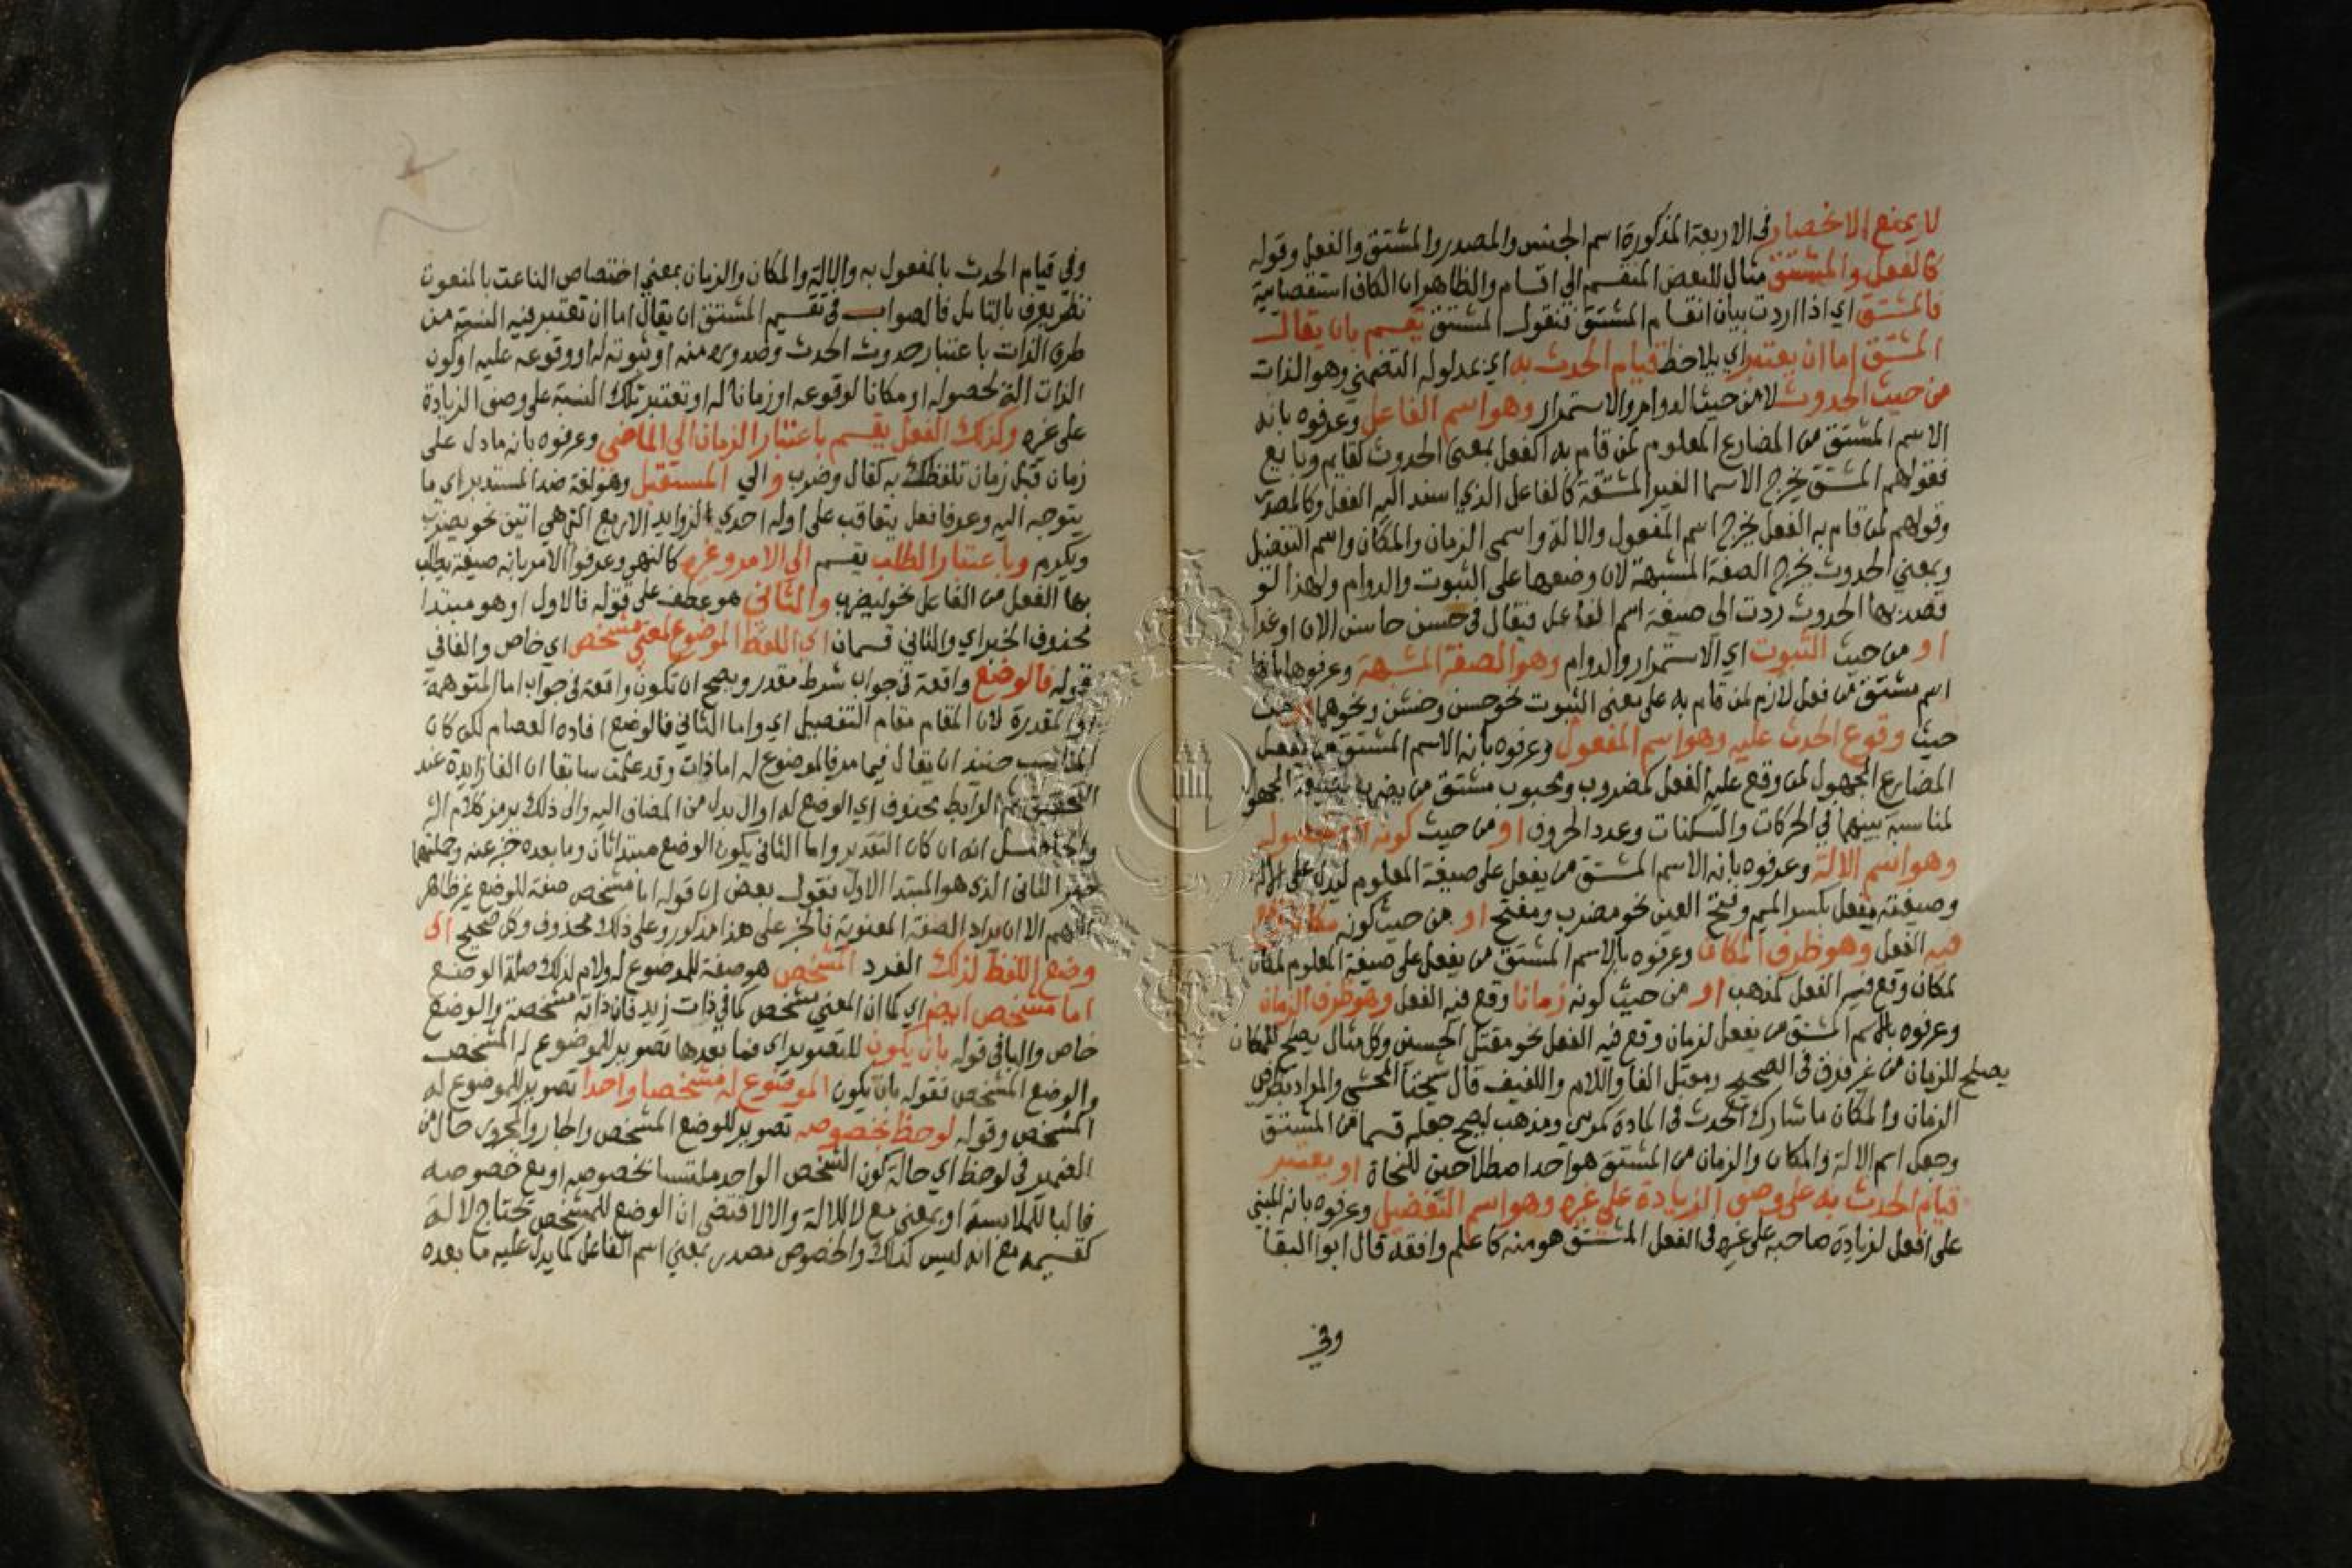 لا يمنع الانحصار في الاربعة المذكورة اسم الجنس والمصدر والمشتق والفعل وقوله
كالفعل والمشتق مثال للبعض المنقسم الى اقسام والظاهر ان الكاف استقصائية
فالمشتق اي اذا اردت بيان انقسام المشتق فنقول المشتق يقسم بان يقال
المشتق اما ان يعتبر اي يلاحظ قيام الحدث به اي بمدلوله التضمني وهو الذات
من حيث الحدوث لا من حيث الدوام والاستمرار وهو اسم الفاعل وعرفوه بانه
الاسم المشتق من المضارع المعلوم لمن قام به الفعل بمعنى الحدوث كقايم وبايع
فقولهم المشتق يخرج الاسما الغير المشتقة كالفاعل الذي اسند اليه الفعل وكالمصدر
وقولهم لمن قام به الفعل يخرج اسم المفعول والالة واسمى الزمان والمكان واسم التفضيل
وبمعني الحدوث يخرج الصفة المشبهة لان وضعها على الثبوت والدوام ولهذا لو
قصد بها الحدوث ردت الى صيغة اسم الفاعل فيقال في حسن حاسن الان او غدا
او من حيث الثبوت اي الاستمرار والدوام وهو الصفة المشبهة وعرفوها بانها
اسم مشتق من فعل لازم لمن قام به على معنى الثبوت نحو حسن وخشن ونحوهما او من حيث
حيث وقوع الحدث عليه وهو اسم المفعول وعرفوه بانه الاسم المشتق من يفعل
المضارع المجهول لمن وقع عليه الفعل كمضروب ومحبوب مشتق من يضرب بصيغة المجهو
لمناسبة بينهما في الحركات والسكنات وعدد الحروف او من حيث كونه آلة لحصوله
وهو اسم الالة وعرفوه بانه الاسم المشتق من يفعل على صيغة المعلوم ليدل على الالة
وصيغته مفعل بكسر الميم وفتح العين نحو مضرب ومفتح او من حيث كونه مكانا وقع
فيه الفعل وهو ظرف المكان وعرفوه بالاسم المشتق من يفعل على صيغة المعلوم لمكان
لمكان وقع فيه الفعل كمذهب او من حيث كونه زمانا وقع فيه الفعل وهو ظرف الزمان
وعرفوه بالاسم المشتق من يفعل لزمان وقع فيه الفعل نحو مقتل الحسين وكل مثال يصلح للمكان
يصلح للزمان من غير فرق في الصحيح ومعتل الفا واللام واللفيف قال شيخنا المحشي والمراد بظرفي
الزمان والمكان ما شارك الحدث في المادة كمرمى ومذهب ليصح جعله قسما من المشتق
وجعل اسم الالة والمكان والزمان من المشتق هو احد اصطلاحين للنحاة او يعتبر
قيام الحدث به على وصف الزيادة على غيره وهو اسم التفضيل وعرفوه بانه المبني
على افعل لزيادة صاحبه على غيره في الفعل المشتق هو منه كاعلم وافقه قال ابو البقا
وفي
وفي قيام الحدث بالمفعول به والالة والمكان والزمان بمعني اختصاص الناعت بالمنعوت
نظر يعرف بالتامل فالصواب في تقسيم المشتق ان يقال اما ان تعتبر فيه النسبة من
طرف الذات باعتبار حدوث الحدث وصدوره منه او ثبوته له او وقوعه عليه او كون
الذات الة لحصوله او مكانا لوقوعه او زمانا له او تعتبر تلك النسبة على وصف الزيادة
على غيره وكذلك الفعل يقسم باعتبار الزمان الي الماضي وعرفوه بانه ما دل على
زمان قبل زمان تلفظك به كقال وضرب والي المستقبل وهو لغة ضد المستدبر اي ما
يتوجه اليه وعرفا فعل يتعاقب على اوله احدي الزوايد الاربع التي هي اتين نحو يضرب
ويكرم وباعتبار الطلب يقسم الي الامر وغيره كالنهي وعرفوا الامر بانه صيغة يطلب
بها الفعل من الفاعل نحو ليضرب والثاني هو عطف على قوله فالاول وهو مبتدا
محذوف الخبر اي والثاني قسمان اي اللفظ الموضوع لمعنى مشخص اي خاص والفا في
قوله فالوضع واقعة في جواب شرط مقدر ويصح ان تكون واقعة في جواب اما المتوهمة
او المقدرة لان المقام مقام التفصيل اي واما الثاني فالوضع افاده العصام لكن كان
المناسب حينئذ ان يقال فيما مر فالموضوع له اما ذات وقد علمت سابقا ان الفا زايدة عند
التحقيق ثم الرابط محذوف اي الوضع له او ال بدل من المضاف اليه والى ذلك يرمز كلام الش
والحاصل انه ان كان التقدير واما الثاني يكون الوضع مبتدا ثان وما بعده خبر عنه وجملتهما
خبر الثاني الذي هو المبتدا الاول فقول بعض ان قوله اما مشخص صفة للوضع غير ظاهر
اللهم الا ان يراد الصفة المعنوية فالخبر على هذا مذكور وعلى ذلك محذوف وكل صحيح اي
وضع اللفظ لذلك الفرد المشخص هو صفة للموضوع له ولام لذلك صلة الوضع
اما مشخص ايضا اي كما ان المعني مشخص كما في ذات زيد فان ذاته مشخصة والوضع
خاص والبا في قوله بان يكون للتصوير اي فما بعدها تصوير للموضوع له المشخص
والوضع المشخص فقوله بان يكون الموضوع له مشخصا واحدا تصوير للموضوع له
المشخص وقوله لوحظ بخصوصه تصوير للوضع المشخص والجار والمجرور حال من
الضمير في لوحظ اي حالة كون الشخص الواحد ملتبسا بخصوصه او مع خصوصه
فالبا للملابسة او بمعني مع لا للالة والا لاقتضى ان الوضع للمشخص يحتاج لالة
كقسيمه مع انه ليس كذلك والخصوص مصدر بمعني اسم الفاعل كما يدل عليه ما بعده